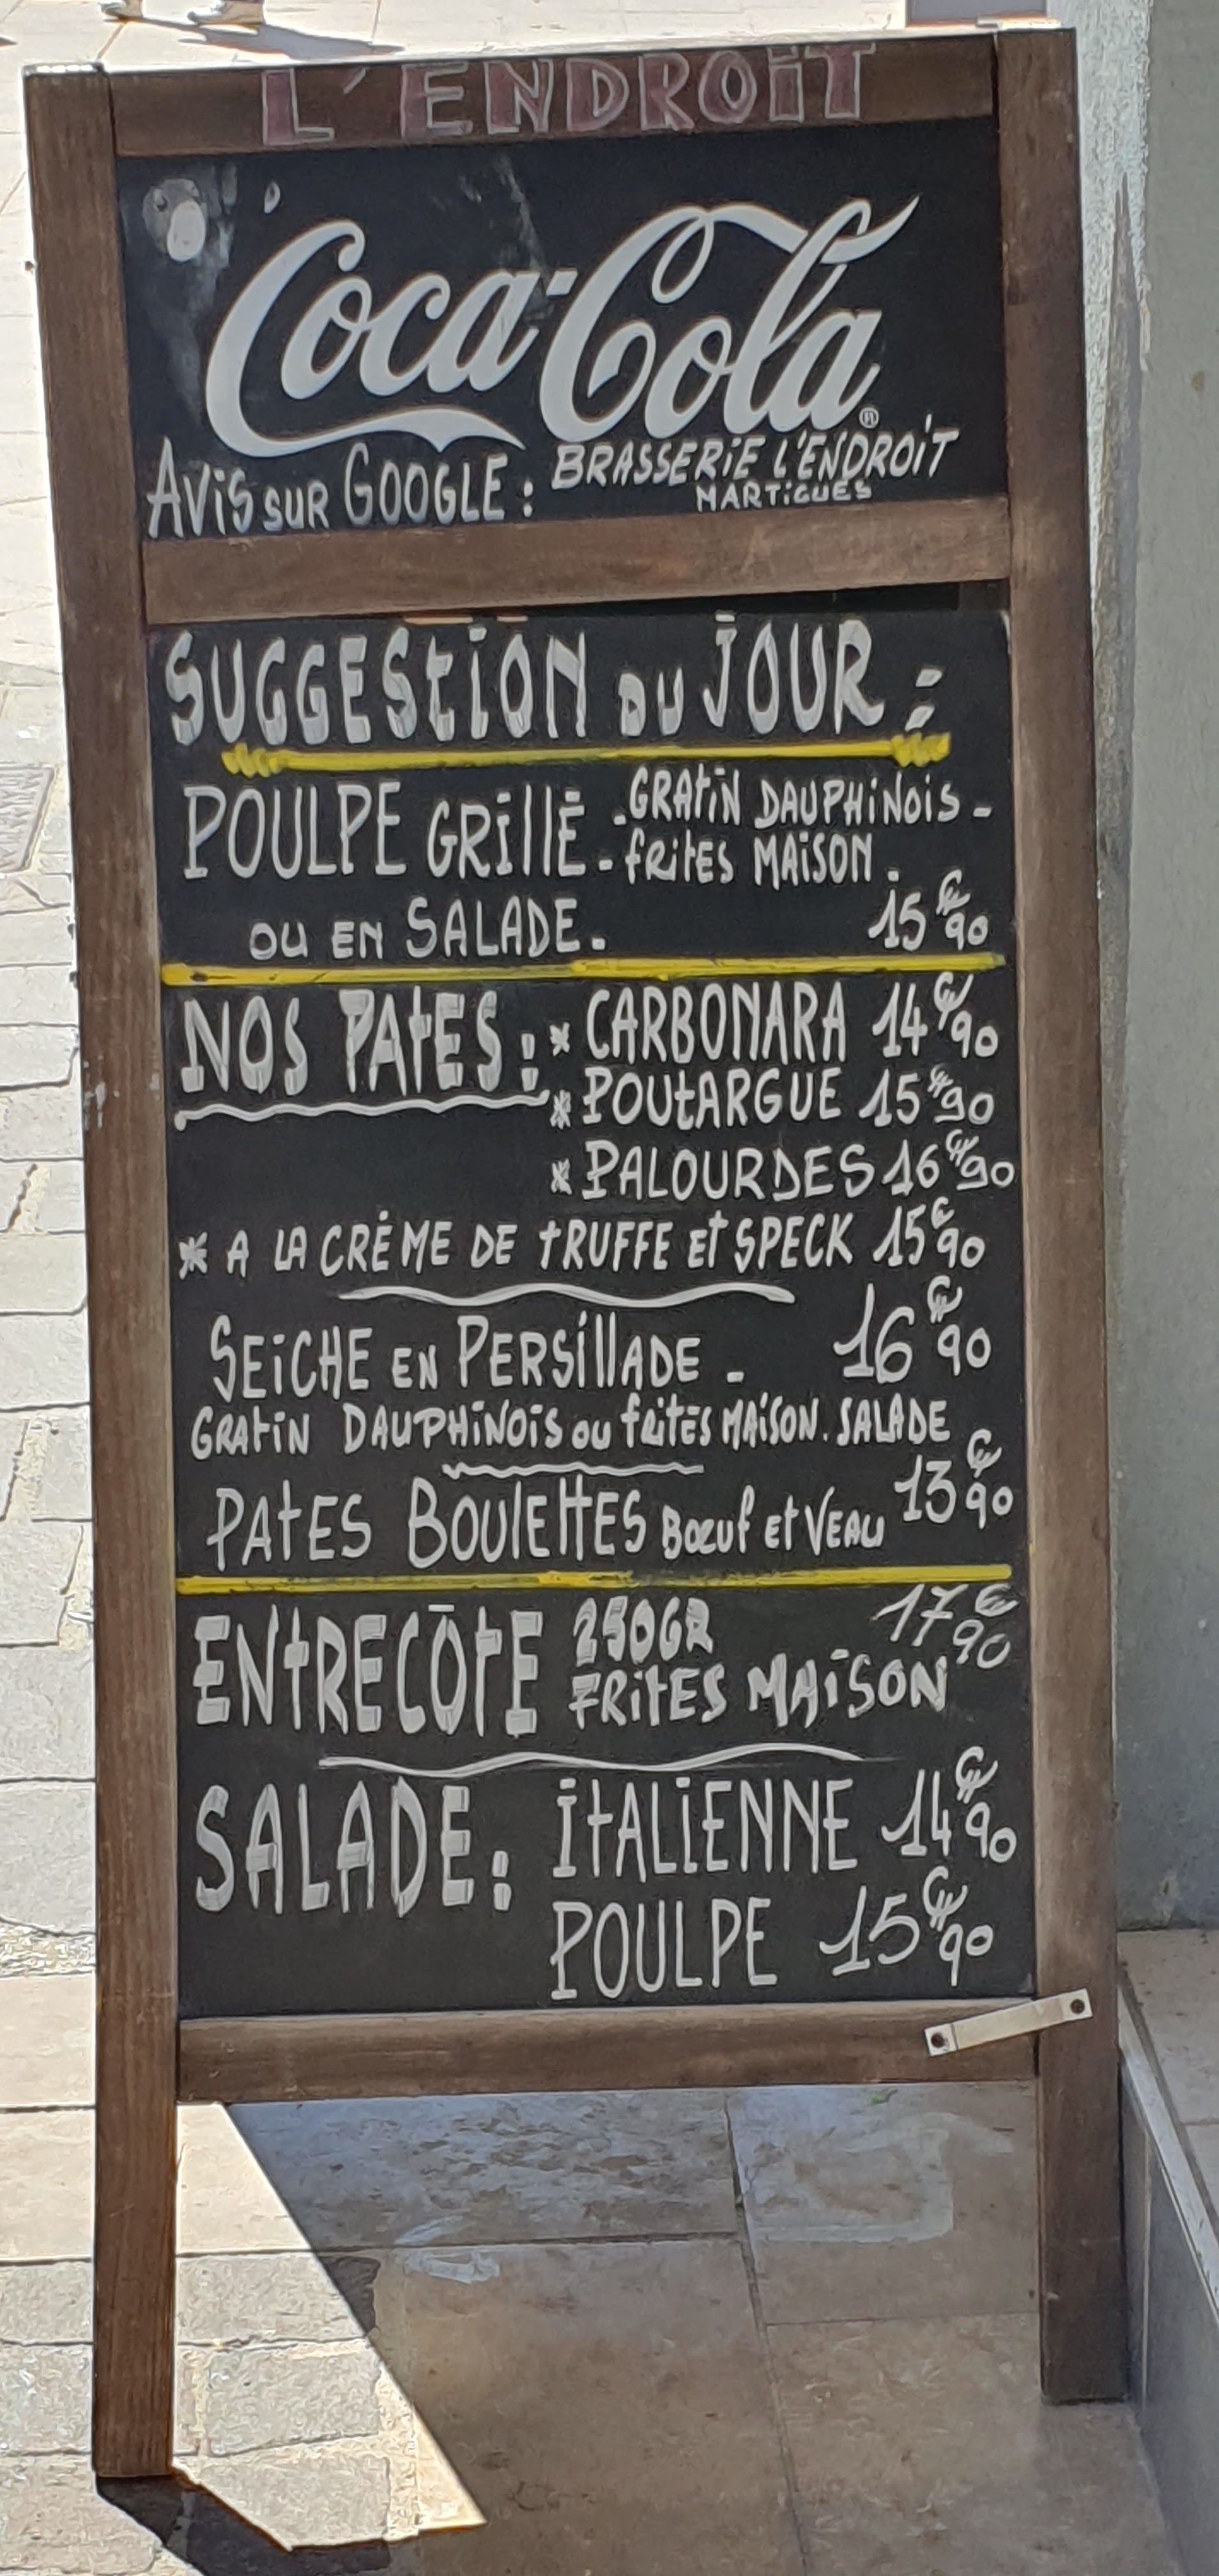 L'ENDROIT
Coca-Cola®
AVIS SUR GOOGLE : BRASSERIE L'ENDROIT
MARTIGUES
SUGGESTION DU JOUR :
POULPE GRILLÉ - GRATIN DAUPHINOIS -
- FRITES MAISON.
OU EN SALADE. 15€90
NOS PATES : * CARBONARA 14€90
* POUTARGUE 15€90
* PALOURDES 16€90
* A LA CRÈME DE TRUFFE ET SPECK 15€90
SEICHE EN PERSILLADE - 16€90
GRATIN DAUPHINOIS OU FRITES MAISON. SALADE
PATES BOULETTES BŒUF ET VEAU 13€90
ENTRECÔTE 250GR 17€90
FRITES MAISON
SALADE : ITALIENNE 14€90
POULPE 15€90